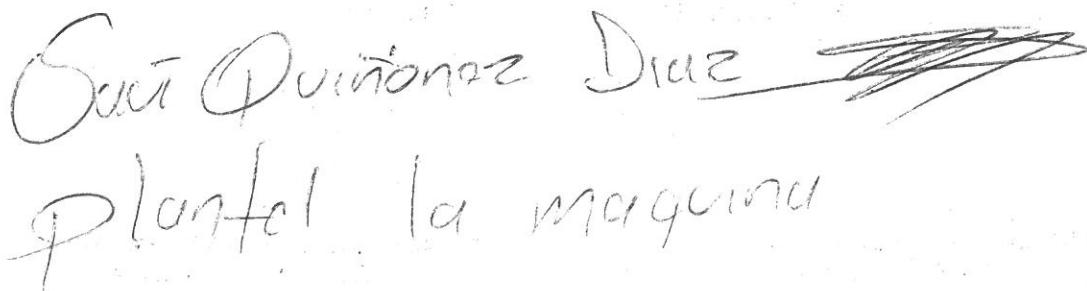 Quiñonez Diaz
plantel la maquina